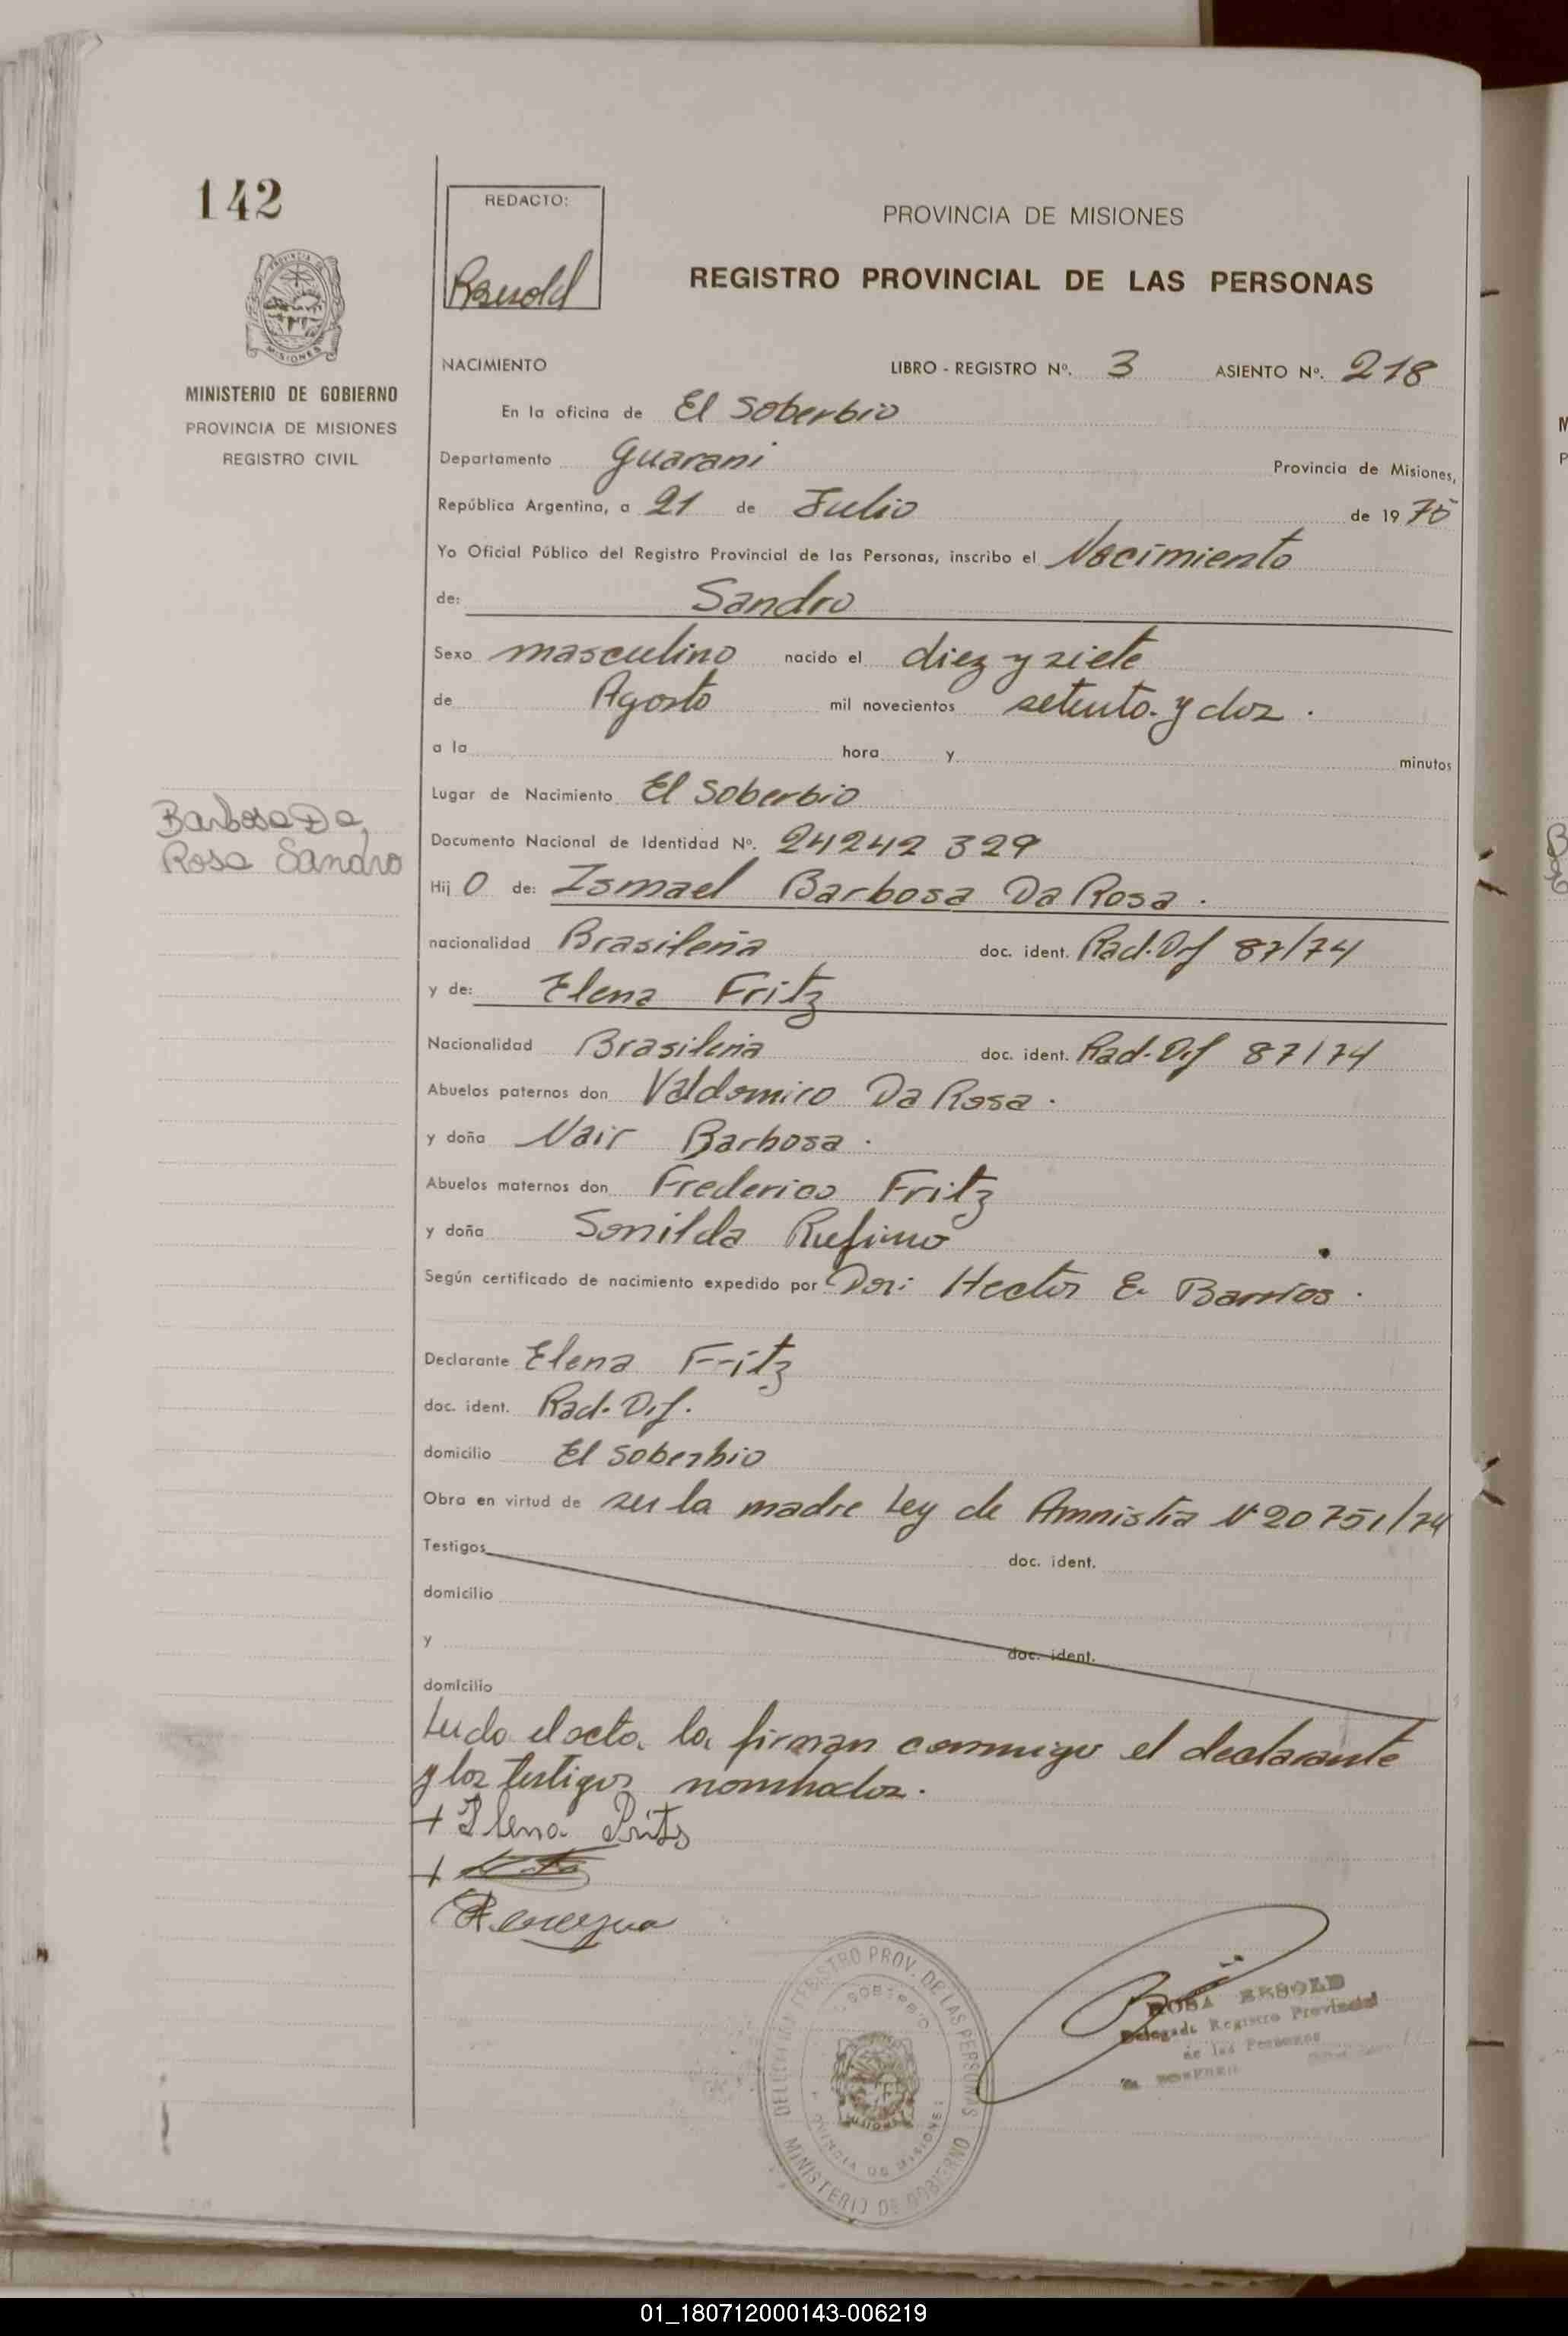 142
REDACTO:
PROVINCIA DE MISIONES
REGISTRO PROVINCIAL DE LAS PERSONAS
MISIONES
MINISTERIO DE GOBIERNO
PROVINCIA DE MISIONES
REGISTRO CIVIL
NACIMIENTO LIBRO - REGISTRO Nº. 3 ASIENTO Nº. 218
En la oficina de El Soberbio
Departamento Guarani Provincia de Misiones,
República Argentina, a 21 de Julio de 19 75
Yo Oficial Público del Registro Provincial de las Personas, inscribo el Nacimiento
de: Sandro
Sexo masculino nacido el diez y siete
de Agosto mil novecientos setenta y dos.
a la hora y minutos
Lugar de Nacimiento El Soberbio
Barbosa Da
Rosa Sandro
Documento Nacional de Identidad Nº. 24242 329
Hij o de: Ismael Barbosa Da Rosa.
nacionalidad Brasileña doc. ident. Rad. Def 87/74
y de: Elena Fritz
Nacionalidad Brasileña doc. ident. Rad. Def 87/74
Abuelos paternos don Valdomiro Da Rosa.
y doña Nair Barbosa.
Abuelos maternos don Frederico Fritz
y doña Sonilda Rufino
Según certificado de nacimiento expedido por Hector E. Barrios.
Declarante Elena Fritz
doc. ident. Rad. Def.
domicilio El Soberbio
Obra en virtud de ser la madre Ley de Amnistia Nº 20751/74
Testigos doc. ident.
domicilio
y doc. ident.
domicilio
Leida el acta la firman conmigo el declarante
y los testigos nombrados.
+ Elena Prits
+
DELEGACION REGISTRO PROV. DE LAS PERSONAS
EL SOBERBIO
PROVINCIA DE MISIONES
MINISTERIO DE GOBIERNO
ROSA
Delegada Registro Provincial
de las Personas